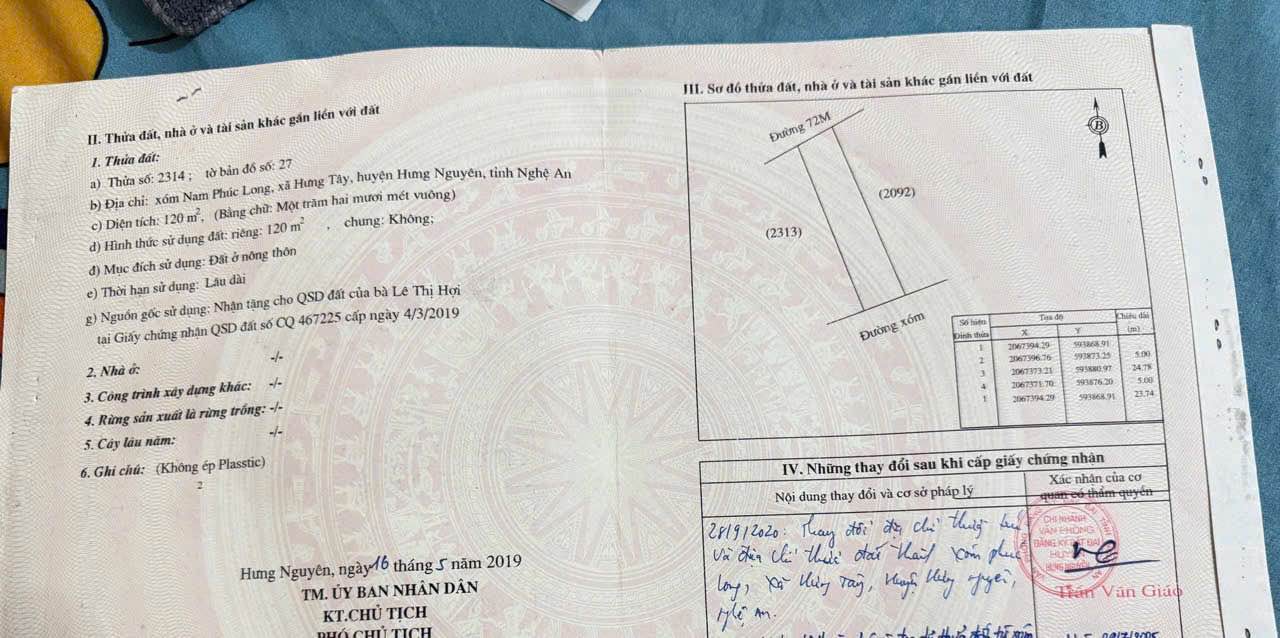 II. Thửa đất, nhà ở và tài sản khác gắn liền với đất
1. Thửa đất:
a) Thửa số: 2314 ; tờ bản đồ số: 27
b) Địa chỉ: xóm Nam Phúc Long, xã Hưng Tây, huyện Hưng Nguyên, tỉnh Nghệ An
c) Diện tích: 120 m², (Bằng chữ: Một trăm hai mươi mét vuông)
d) Hình thức sử dụng đất: riêng: 120 m² , chung: Không;
đ) Mục đích sử dụng: Đất ở nông thôn
e) Thời hạn sử dụng: Lâu dài
g) Nguồn gốc sử dụng: Nhận tặng cho QSD đất của bà Lê Thị Hợi
tại Giấy chứng nhận QSD đất số CQ 467225 cấp ngày 4/3/2019
2. Nhà ở: -/-
3. Công trình xây dựng khác: -/-
4. Rừng sản xuất là rừng trồng: -/-
5. Cây lâu năm: -/-
6. Ghi chú: (Không ép Plasstic)
2
Hưng Nguyên, ngày 16 tháng 5 năm 2019
TM. ỦY BAN NHÂN DÂN
KT.CHỦ TỊCH
PHÓ CHỦ TỊCH
III. Sơ đồ thửa đất, nhà ở và tài sản khác gắn liền với đất
Đường 72M
B
(2092)
(2313)
Đường xóm
Số hiệu Tọa độ Chiều dài
Đỉnh thửa X Y (m)
1 2067394.29 593868.91
2 2067396.76 593873.25 5.00
3 2067373.21 593880.97 24.78
4 2067371.70 593876.20 5.00
1 2067394.29 593868.91 23.74
IV. Những thay đổi sau khi cấp giấy chứng nhận
Nội dung thay đổi và cơ sở pháp lý
Xác nhận của cơ
quan có thẩm quyền
28/9/2020: Thay đổi địa chỉ thửa đất
và địa chỉ thửa đất thành xóm phúc
long, xã Hưng Tây, huyện Hưng Nguyên,
Nghệ An.
CHI NHÁNH
VĂN PHÒNG
ĐĂNG KÝ ĐẤT ĐAI
HUYỆN
HƯNG NGUYÊN
Trần Văn Giáo